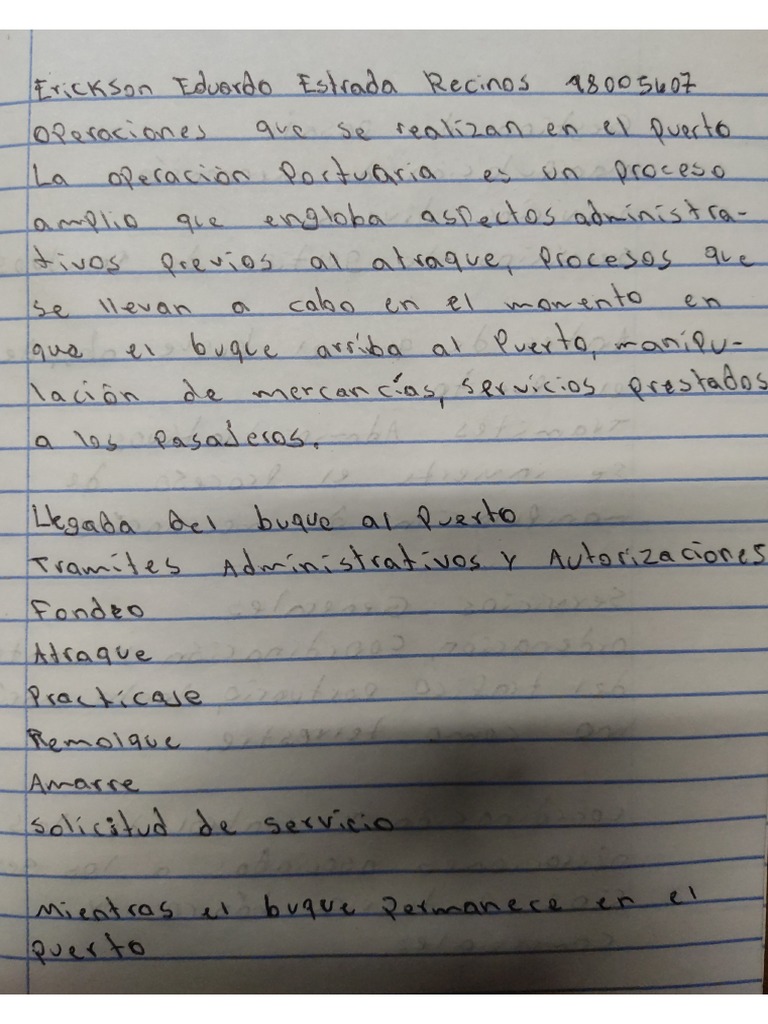 Erickson Eduardo Estrada Recinos 18005607
Operaciones que se realizan en el puerto
La operación Portuaria es un proceso
amplio que engloba aspectos administra-
tivos previos al atraque, procesos que
se llevan a cabo en el momento en
que el buque arriba al Puerto, manipu-
lación de mercancías, servicios prestados
a los pasajeros.
Llegada del buque al puerto
Tramites Administrativos y Autorizaciones
Fondeo
Atraque
Practicaje
Remolque
Amarre
Solicitud de servicio
Mientras el buque permanece en el
puerto